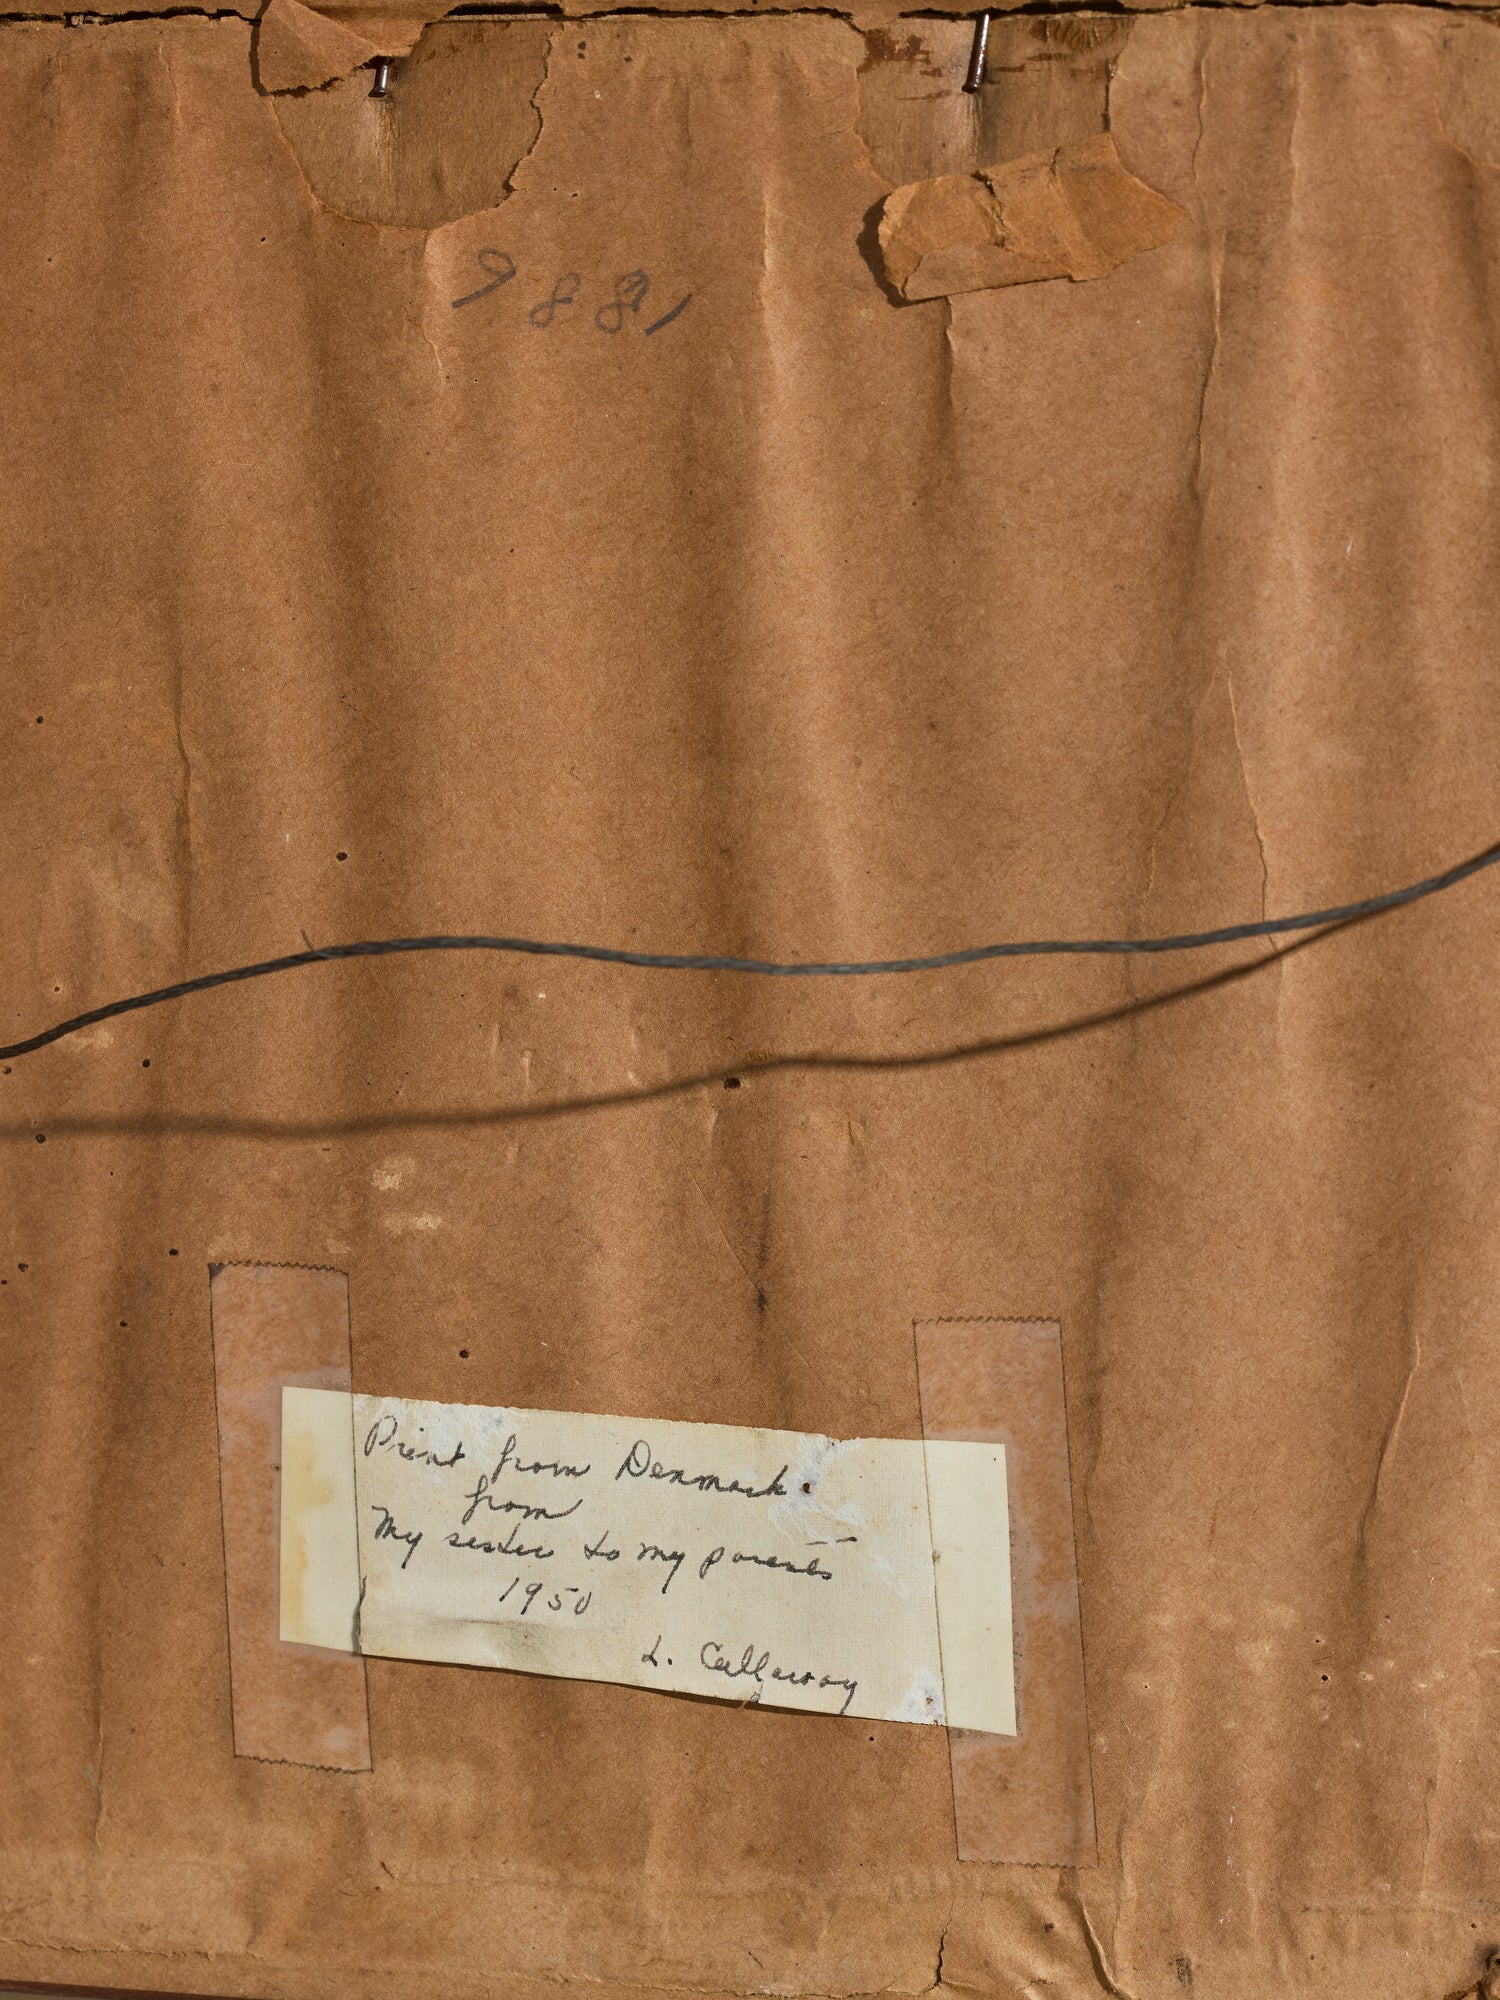 9881
Print from Denmark
from
My sister to my parents
1950
L. Callaway